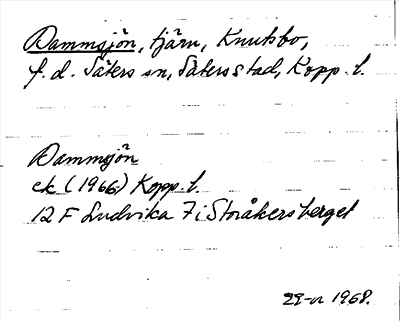 Dammsjön, tjärn, Knutsbo,
f.d. Säters sn, Säters stad, Kopp. l.
Dammsjön
ek (1966) Kopp. l.
12 F Ludvika 7 i Storåkersberget
1968.